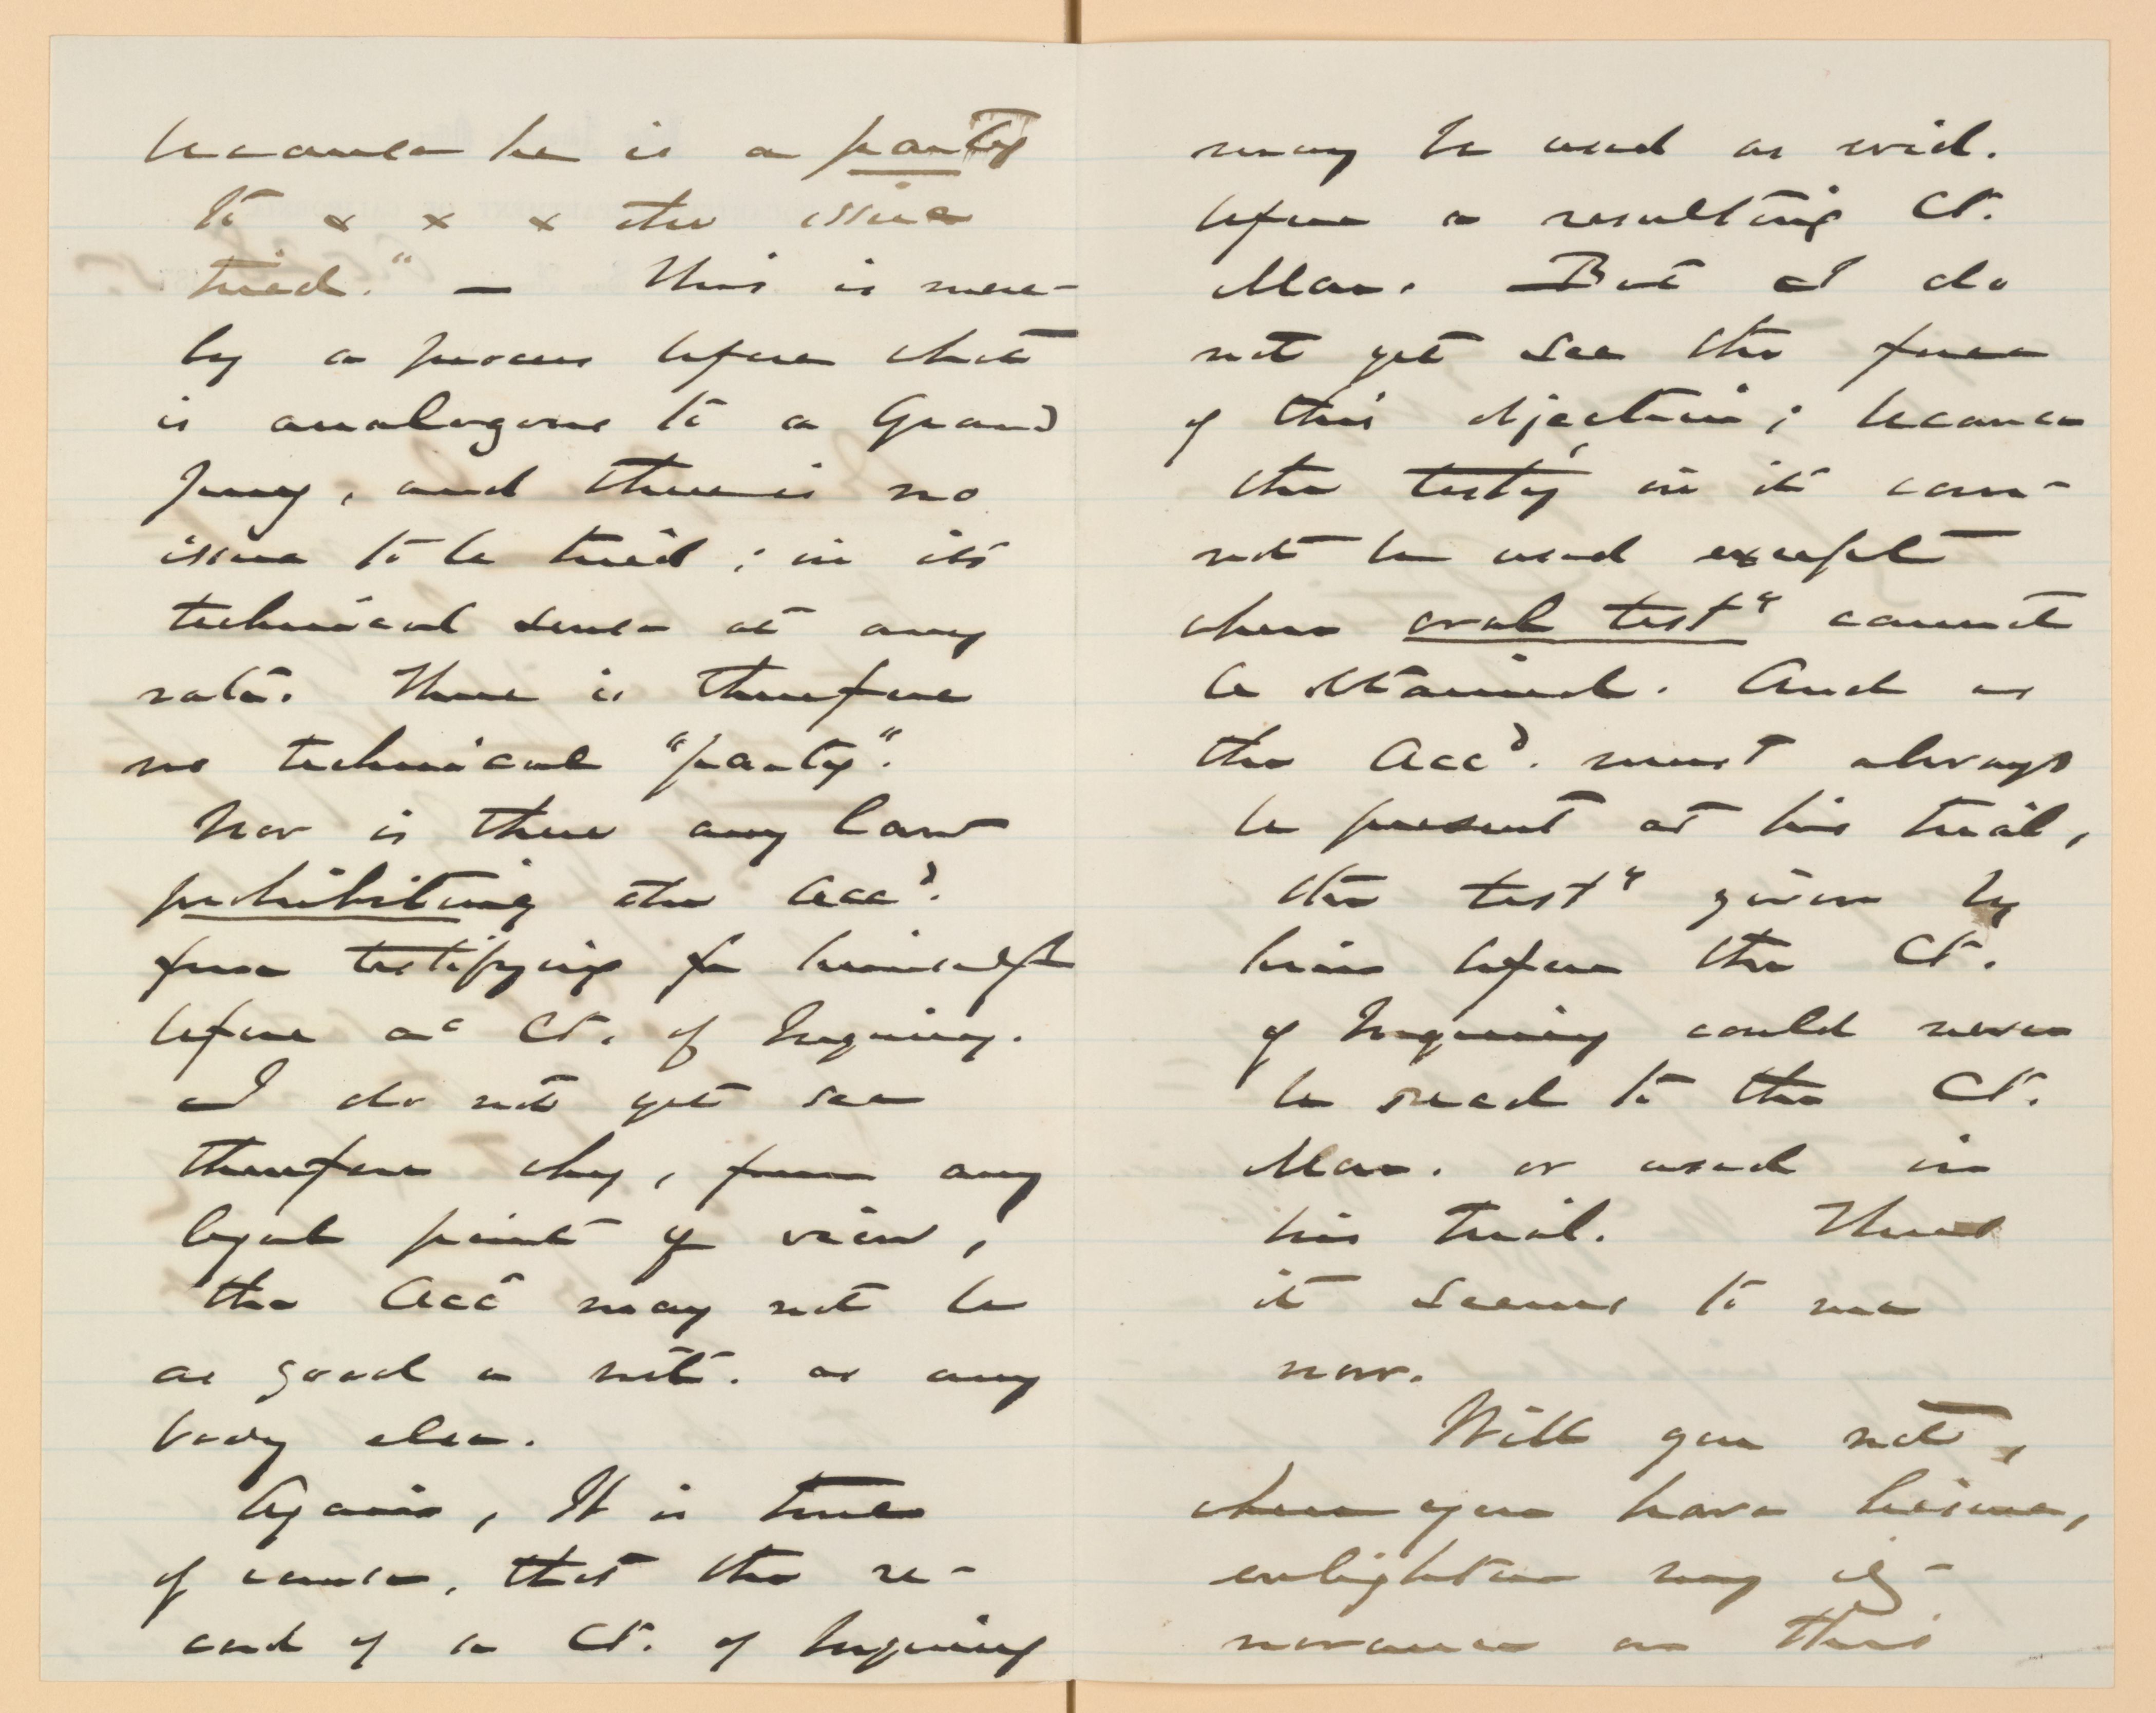 because he is a party
to x x x the issue
tried." — This is mere-
ly a process before what
is analogous to a Grand
Jury, and there is no
issue to be tried; in its
technical sense at any
rate. There is therefore
no technical "party".
Nor is there any law
prohibiting the Accd.
from testifying for himself
before a Ct. of Inquiry.
I do not yet see
therefore why, from any
legal point of view,
the Accd may not be
as good a wit. as any
body else.
Again, It is true
of course, that the re-
cord of a Ct. of Inquiry
may be used as evid.
before a resulting Ct.
Mar. But I do
not yet see the force
of this objection; because
the testy in it can-
not be used except
when oral testy cannot
be obtained. And as
the Accd. must always
be present at his trial,
the testy given by
him before the Ct.
of Inquiry could never
be read to the Ct.
Mar. or used in
his trial. Thus
it seems to me
now.
Will you not,
when you have leisure,
enlighten my ig-
norance on this